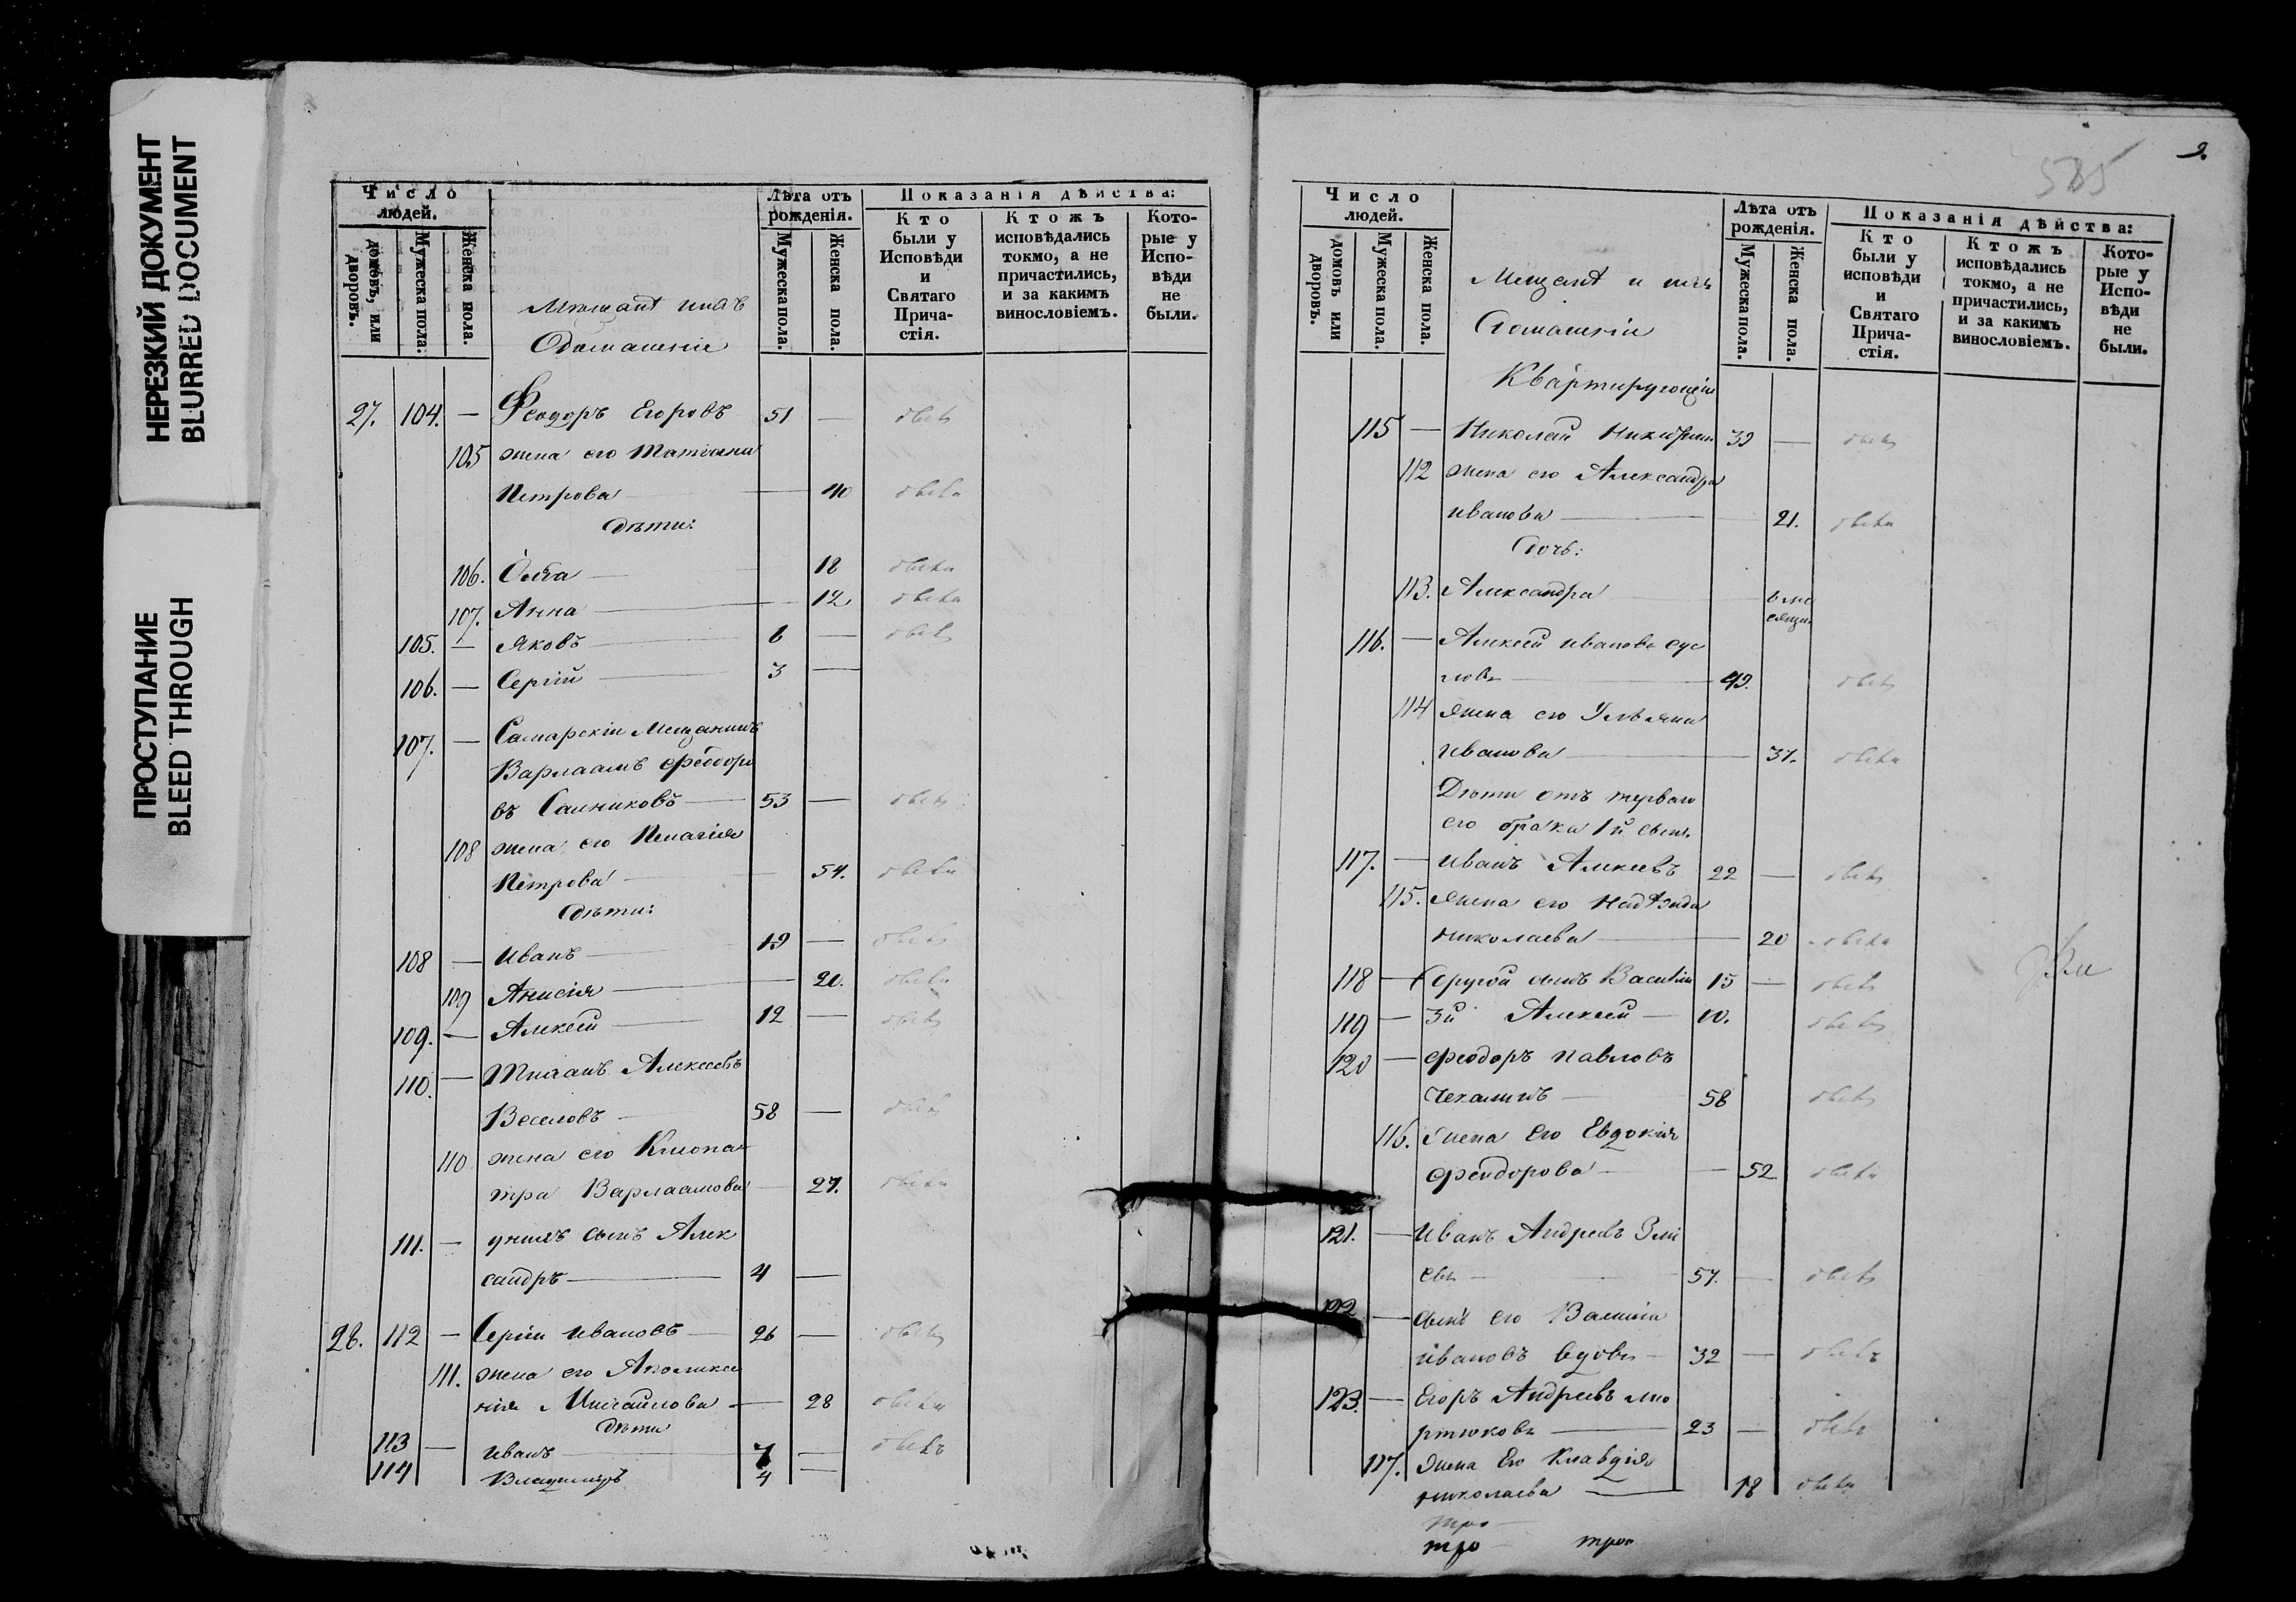 НЕРЕЗКИЙ ДОКУМЕНТ
BLURRED DOCUMENT
ПРОСТУПАНИЕ
BLEED THROUGH
Число людей.
домовъ, или дворовъ.
Мужеска пола.
Женска пола.
Мѣщанѣ ихъ
Домашніе
Лѣта отъ рожденія.
Мужеска пола.
Женска пола.
Показанія дѣйства:
Кто были у Исповѣди и Святаго Прича-стія.
Ктожъ исповѣдались токмо, а не причастились, и за какимъ винословіемъ.
Кото-рые у Испо-вѣди не были.
27. 104. — Феодоръ Егоровъ 51 —
105 жена его Татіана
Петрова — 40
дѣти:
106. Ольга — 18
107. Анна — 12
105. — Яковъ — 6 —
106. — Сергій — 3 —
107. — Самарскій Мещанинъ
Варлаамъ Феодоро
въ Санниковъ — 53 —
108 жена его Пелагія
Петрова — 54.
дѣти:
108 — Иванъ — 19 —
109 Анисія — 20.
109. — Алексѣй — 12 —
110. — Алексеевъ
Веселовъ — 58 —
110 жена его Клеопа
тра Варлаамова — 27.
111. — у нихъ сынъ Алек
сандръ — 4 —
28. 112 — Сергій Ивановъ — 26 —
111. жена его Аполина
рія Михайлова — 28
дѣти
113 — Иванъ — 7 —
114 Владимиръ 4 —
585
9.
Число людей.
домовъ или дворовъ.
Мужеска пола.
Женска пола.
Мещанѣ и ихъ
домашніи
Квартирующіи
Лѣта отъ рожденія.
Мужеска пола.
Женска пола.
Показанія дѣйства:
Кто были у исповѣди и Святаго Прича-стія.
Ктожъ исповѣдались токмо, а не причастились, и за какимъ винословіемъ.
Кото-рые у Испо-вѣди не были.
115 — Николай 39 —
112 жена его Александра
Иванова — 21.
дочь:
113. Александра — 6 ме
сяцы
116. — Алексей Ивановъ Сус
ловъ — 49.
114 жена его Ульяна
Иванова — 37.
Дѣти отъ перваго
его брака 1й сынъ
117. — Иванъ Алексеевъ 22 —
115. жена его Надѣжда
Николаева — 20
118 — Другой сынъ Василій 15 —
119 — 3й Алексей — 10.
120 — Феодоръ Павловъ
Чекалинъ — 58
116. жена его Евдокія
Феодорова — 52
121. — Иванъ Андреевъ Зми
евъ — 57. —
122 — сынъ его
Ивановъ вдовъ — 32 —
123. — Егоръ Андреевъ
— 23 —
117. жена его Клавдія
Николаева — 18
тро
тро тро